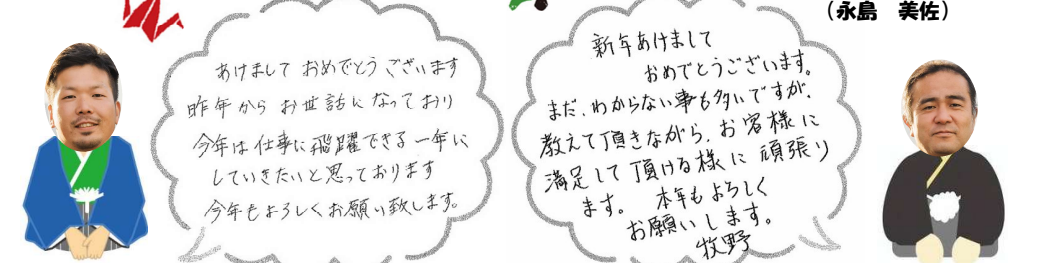 （永島　美佐）
あけまして おめでとうございます
昨年から お世話になっており
今年は仕事に飛躍できる一年に
していきたいと思っております
今年もよろしくお願い致します。
新年あけまして
おめでとうございます。
まだ、わからない事も多いですが、
教えて頂きながら、お客様に
満足して頂ける様に 頑張り
ます。 本年もよろしく
お願いします。
牧野